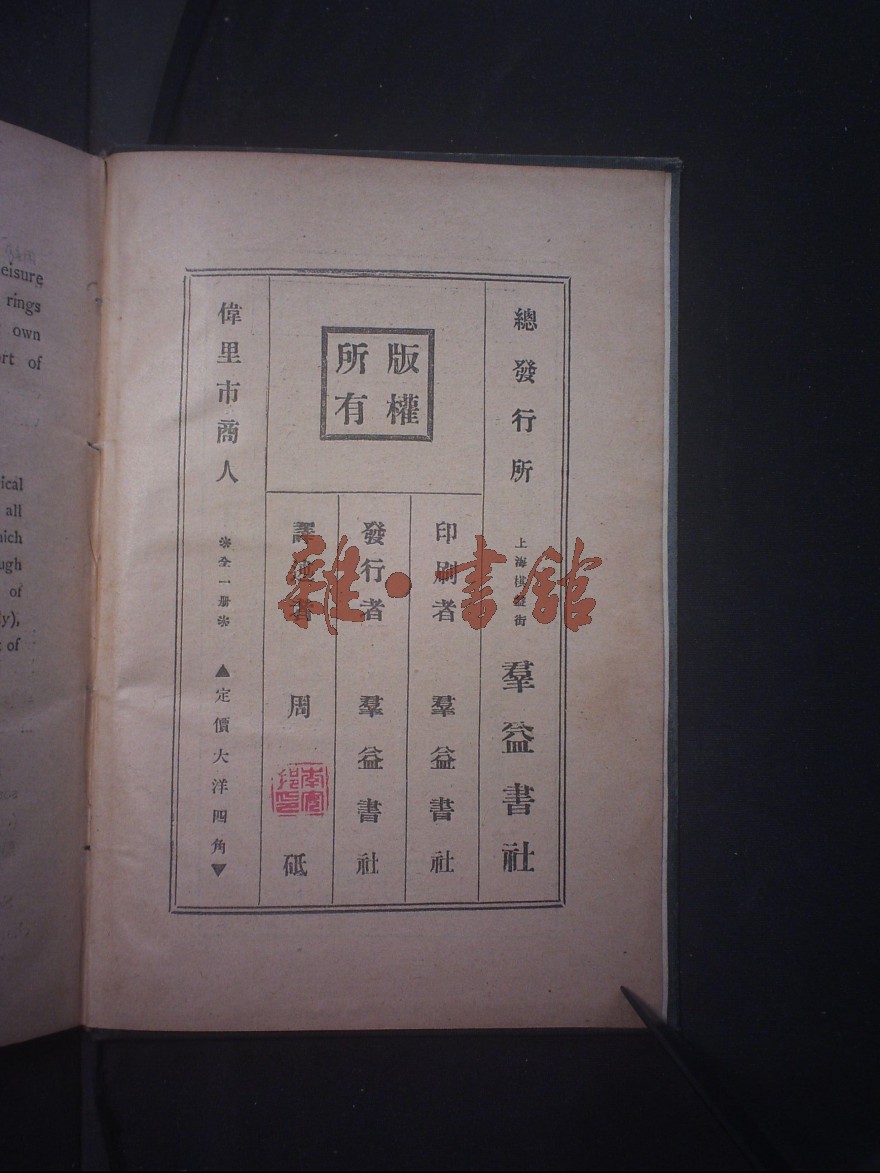 總發行所 上海棋盤街 羣益書社
版權所有
印刷者 羣益書社
發行者 羣益書社
周砥
偉里市商人 ＊全一册＊ ▲定價大洋四角▼
雜·書館
eisure
rings
own
rt of
ical
all
hich
ugh
of
ly),
of